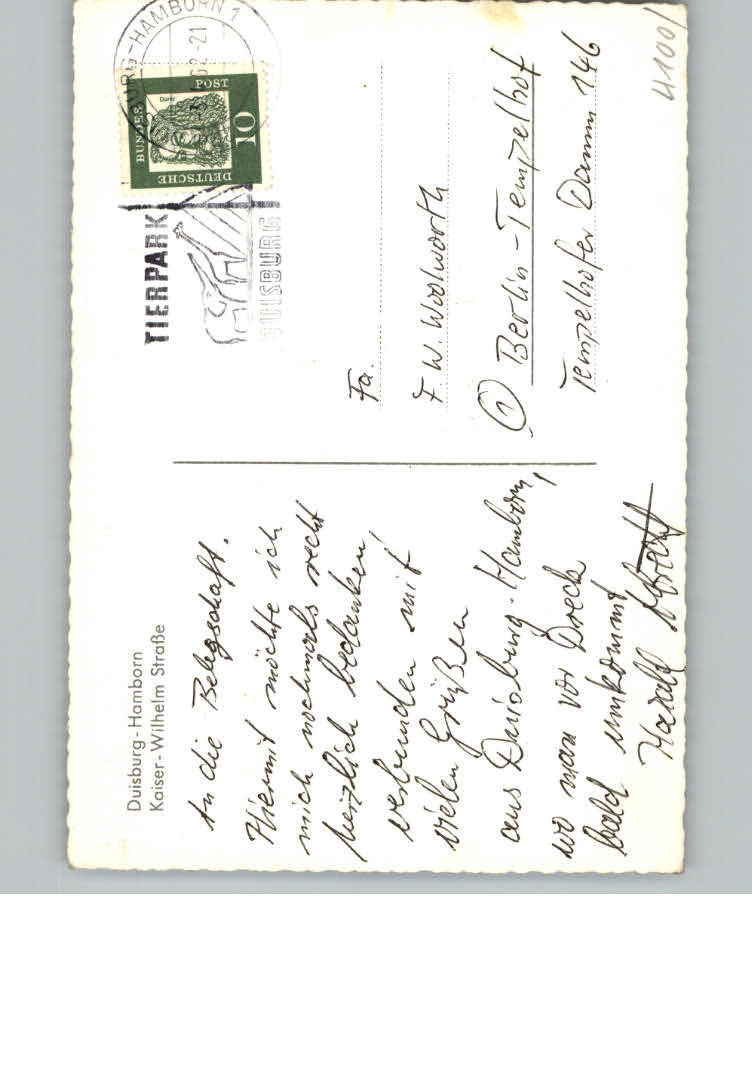 Duisburg - Hamborn
Kaiser - Wilhelm Straße
An die Belegschaft.
Hiermit möchte ich
mich nochmals recht
herzlich bedanken,
verbunden mit
vielen Grüßen
aus Duisburg-Hamborn,
wo man vor Dreck
bald umkommt
Harald
DUISBURG-HAMBORN 1
62-21
TIERPARK
DUISBURG
DEUTSCHE
BUNDESPOST
Dürer
10
Fa.
F. W. Woolworth
(1) Berlin-Tempelhof
Tempelhofer Damm 146
4100/